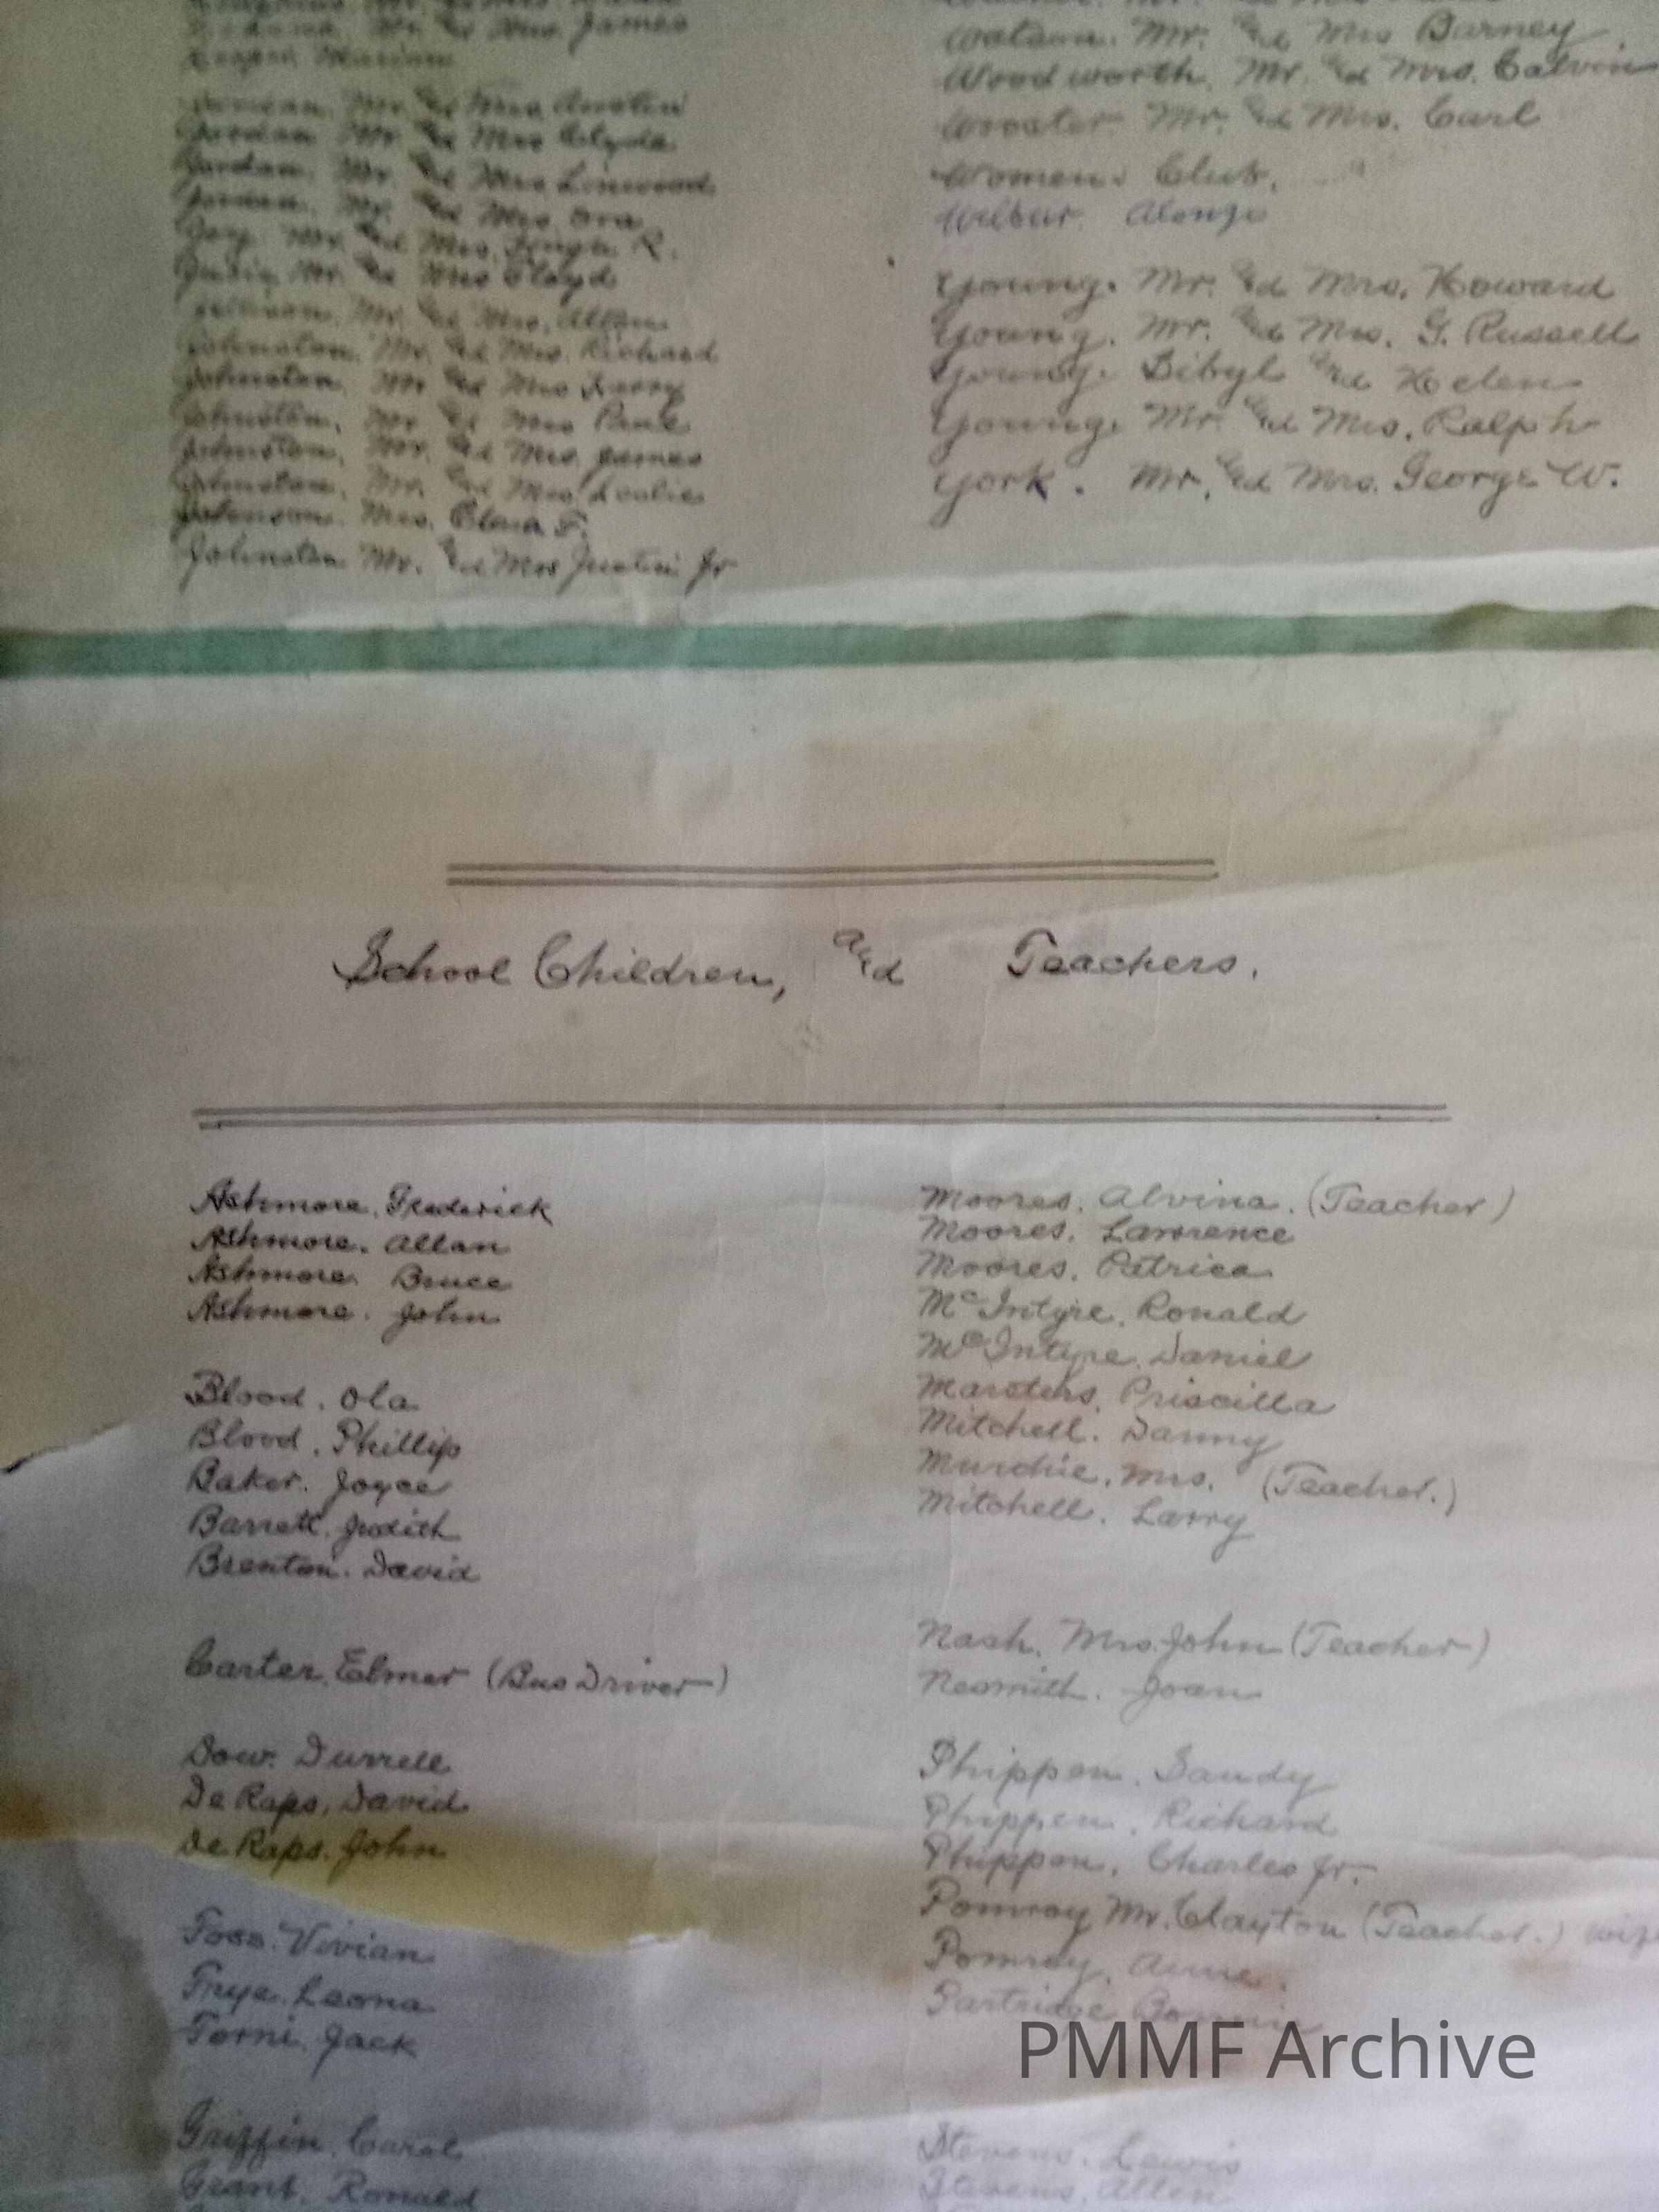 Mr. & Mrs. James
Marian
Mr. and Mrs. Austin
Jordan. Mr. and Mrs Clyde
Jordan. Mr. and Mrs Linwood
Jordan. Mr. and Mrs. Ora
Joy. Mr. and Mrs. R.
Mr. and Mrs Cloyd
Mr. and Mrs. Allan
Johnston. Mr. and Mrs. Richard
Johnston. Mr and Mrs Harry
Johnston, Mr and Mrs
Johnston, Mr. and Mrs. James
Johnston, Mr. and Mrs. Leslie
Johnson. Mrs. F.
Johnston Mr. and Mrs Justin Jr
Watson. Mr. and Mrs Barney
Woodworth, Mr. and Mrs. Calvin
Wooster Mr. and Mrs. Carl
Womens Club.
Wilbur. Alonzo
Young. Mr. and Mrs. Howard
Young. Mr. and Mrs. G. Russell
Young. Sibyl and Helen
Young. Mr. and Mrs. Ralph
York. Mr. and Mrs. George W.
School Children, and Teachers.
Ashmore. Frederick
Ashmore. Allan
Ashmore. Bruce
Ashmore. John
Blood. Ola
Blood. Phillip
Baker. Joyce
Barrett. Judith
Brenton. David
Carter. Elmer (Bus Driver)
Dow. Durrell
De Raps, David
De Raps. John
Foss. Vivian
Frye. Leona
Forni. Jack
Griffin. Carol
Grant. Ronald
Moores. Alvina. (Teacher)
Moores. Lawrence
Moores. Patrica
McIntyre. Ronald
McIntyre. Daniel
Marsters. Priscilla
Mitchell. Danny
Murdie. Mrs. (Teacher.)
Mitchell. Larry
Nash. Mrs. John (Teacher)
Nesmith. Joan
Phippen. Sandy
Phippen. Richard
Phippen. Charles Jr.
Pomroy Mr. Clayton (Teacher.)
Pomroy. Anne.
Partridge
Stevens. Lewis
Stevens. Allen
PMMF Archive